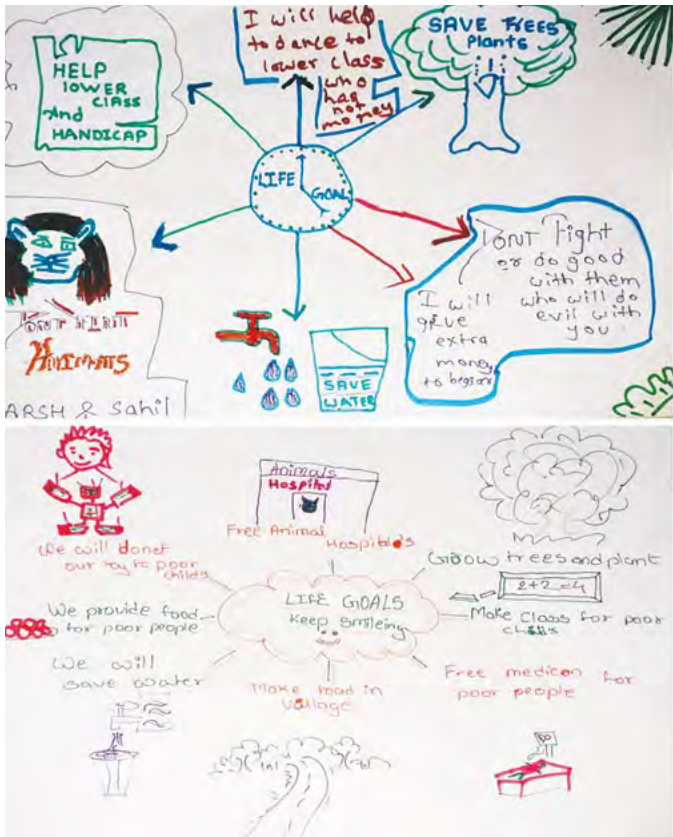 HELP
LOWER
CLASS
And
HANDICAP
I will help
to dance to
lower class
who
has
not
money
SAVE TREES
Plants
LIFE GOAL
DONT Fight
or do good
with them
who will do
evil with
you
I will
give
extra
money
to begsar
ANIMALS
ARSH & Sahil
SAVE
WATER
Animals
Hospital
Free Animal
Hospitals
We will donet
our toy to poor
childs
Groow trees and plant
2+2=4
LIFE GOALS
Keep Smileing
We provide food
for poor people
Make Class for poor
childs
We will
save water
Make road in
village
Free medicen for
poor people